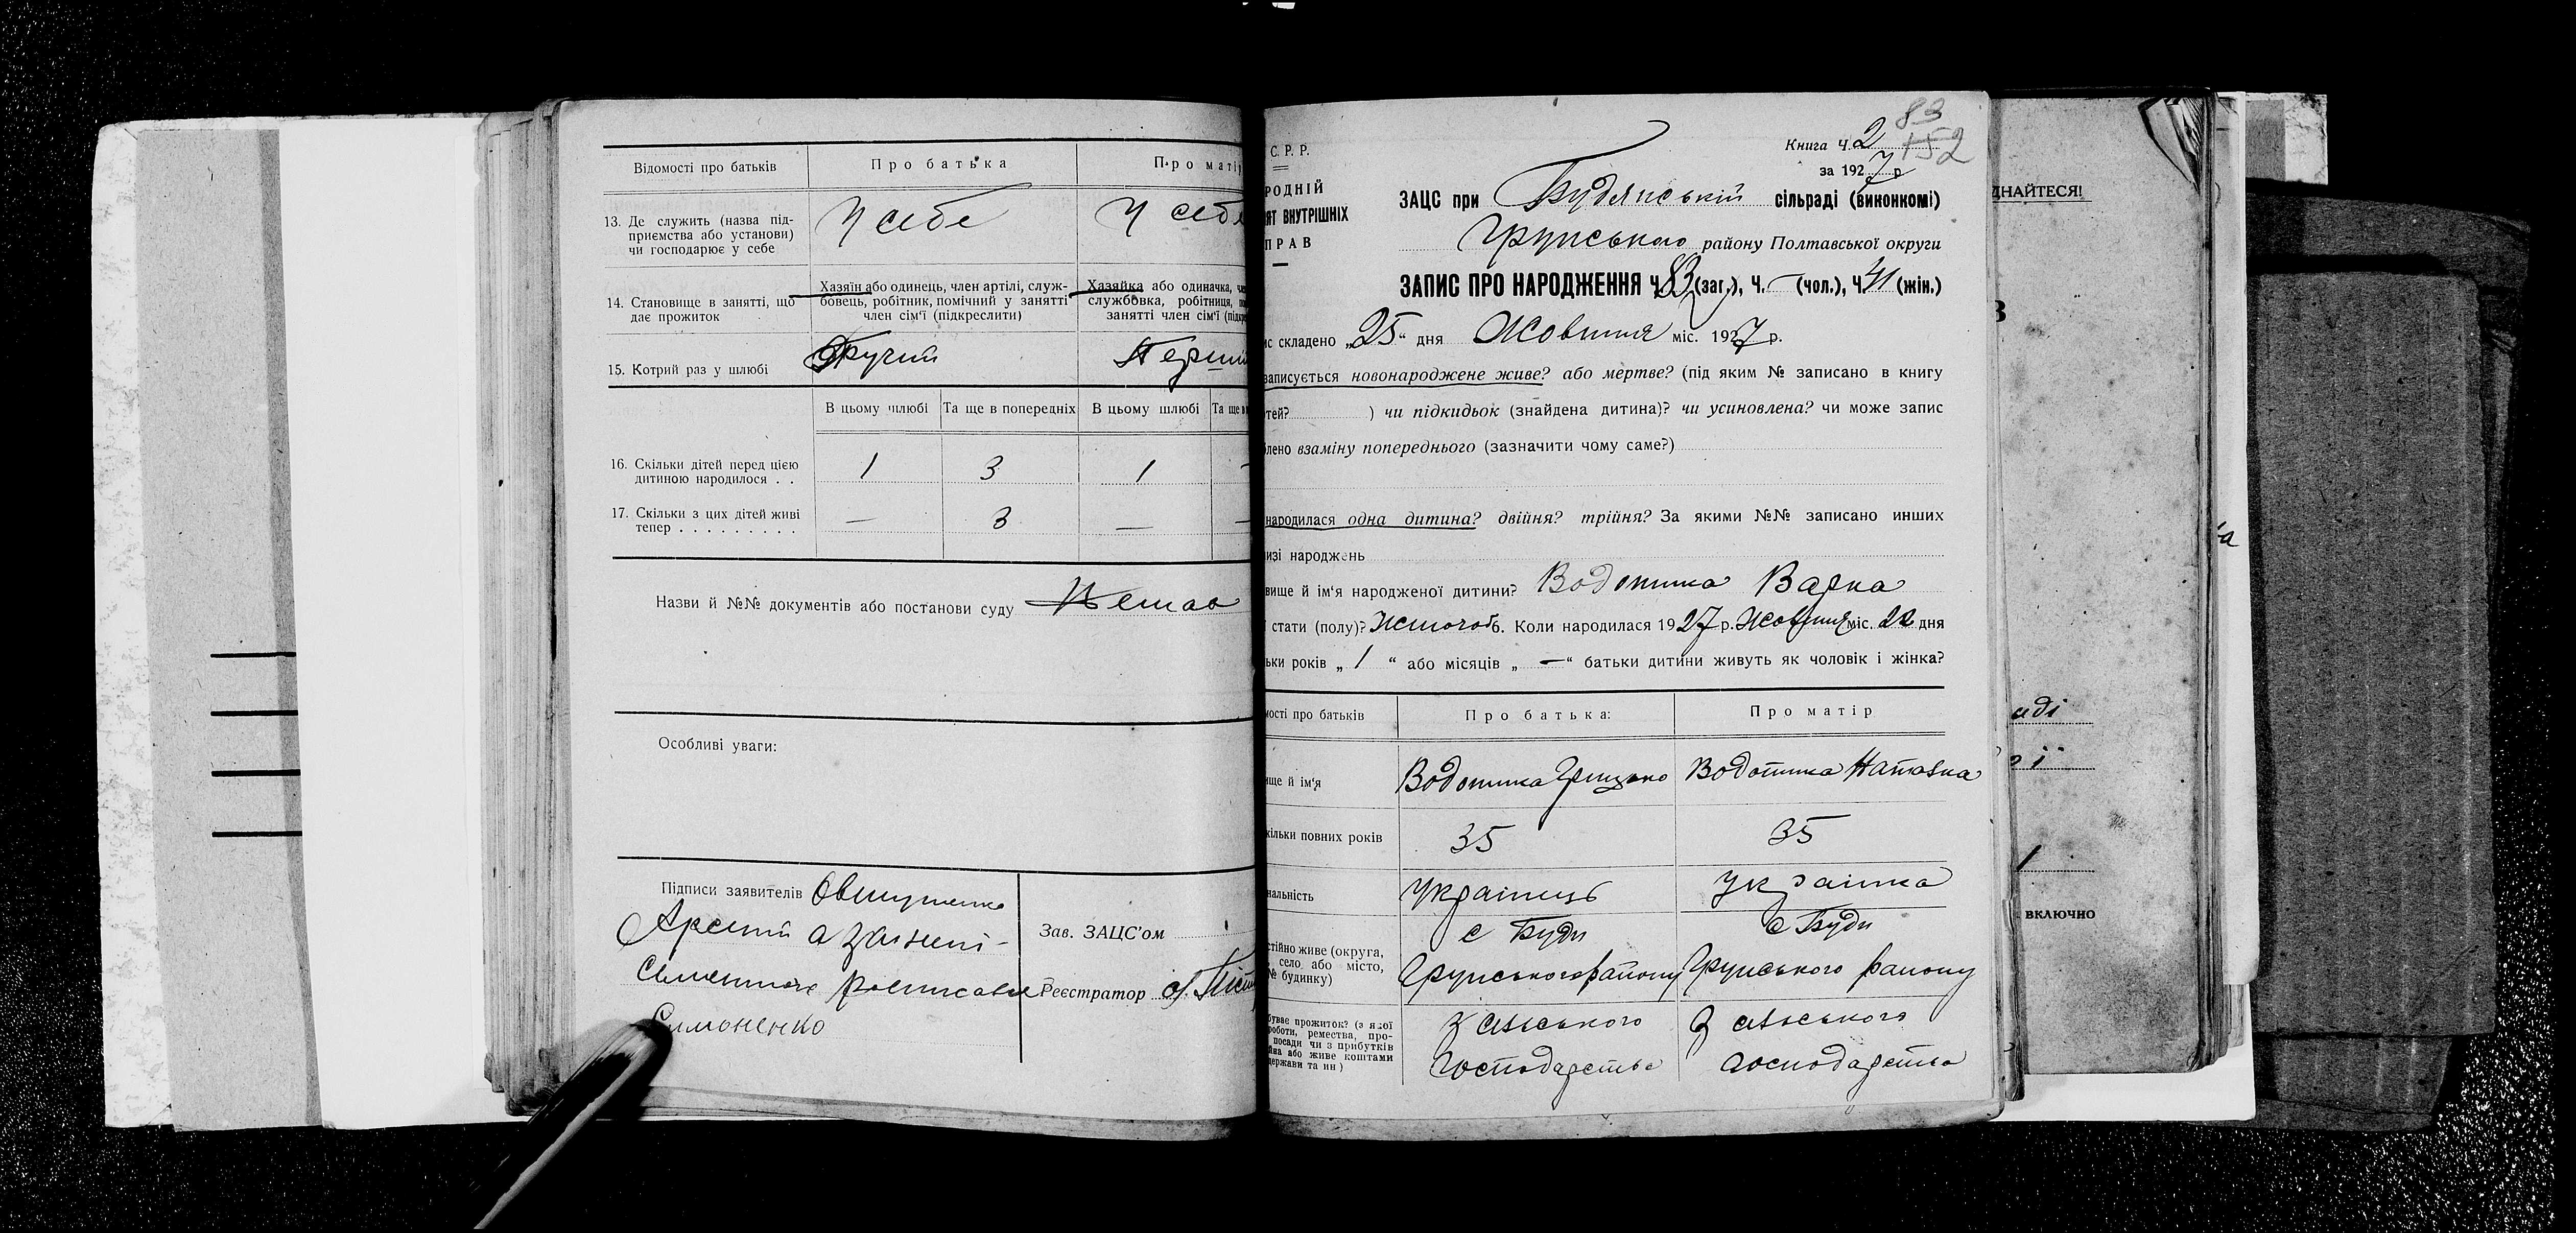 Відомості про батьків
Про батька
Про матір
13. Де служить (назва під-
приємства або установи)
чи господарює у себе
У себе
У себе
14. Становище в занятті, що
дає прожиток
Хазяїн або одинець, член артілі, служ-
бовець, робітник, помічний у занятті
член сім'ї (підкреслити)
Хазяйка або одиначка, чл
службовка, робітниця, по
занятті член сім'ї (підкре
15. Котрий раз у шлюбі
Другий
Перший
В цьому шлюбі
Та ще в попередніх
В цьому шлюбі
Та ще в п
16. Скільки дітей перед цією
дитиною народилося . .
1
3
1
-
17. Скільки з цих дітей живі
тепер . . . . . . . . .
—
3
—
—
Назви й №№ документів або постанови суду
Немає
Особливі уваги:
Підписи заявителів
Арсеній а за
Симоненко
Зав. ЗАЦС'ом
Реєстратор
83
152
Книга Ч. 2
за 1927 р
С. Р. Р.
РОДНІЙ
ЯТ ВНУТРІШНІХ
ПРАВ
ЗАЦС при Будянській сільраді (виконкомі)
Грунського району Полтавської округи
ЗАПИС ПРО НАРОДЖЕННЯ Ч. 83 (заг.), Ч. — (чол.), Ч. 41 (жін.)
ис складено „25“ дня Жовтня міс. 1927 р.
записується новонароджене живе? або мертве? (під яким № записано в книгу
ртей? ) чи підкидьок (знайдена дитина)? чи усиновлена? чи може запис
блено взаміну попереднього (зазначити чому саме?)
народилася одна дитина? двійня? трійня? За якими №№ записано инших
изі народжень
вище й ім'я народженої дитини? Водотика Варка
стати (полу)? Жіночоб. Коли народилася 1927 р. Жовтня міс. 22 дня
ьки років „ 1 “ або місяців „ — “ батьки дитини живуть як чоловік і жінка?
мості про батьків
Про батька:
Про матір
ище й ім'я
Водотика Грицько
Водотика Наталка
кільки повних років
35
35
нальність
Українець
Українка
стійно живе (округа,
село або місто,
№ будинку)
с Буди
Грунського району
с Буди
Грунського району
буває прожиток? (з якої
роботи, ремества, про-
посади чи з прибутків
йна або живе коштами
держави та ин)
З сільського
господарства
З сільського
господарства
ДНАЙТЕСЯ!
аді
ії
1
включно